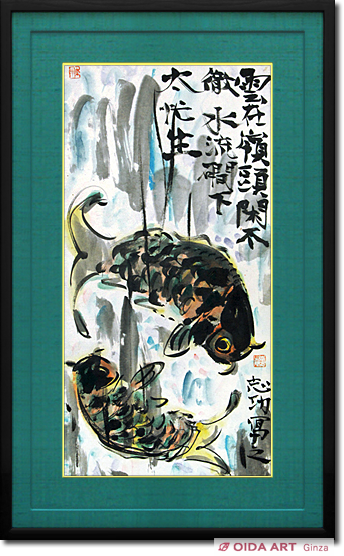 雲在嶺頭閑不
徹水流磵下
太忙生
志功寫之
OIDA ART Ginza